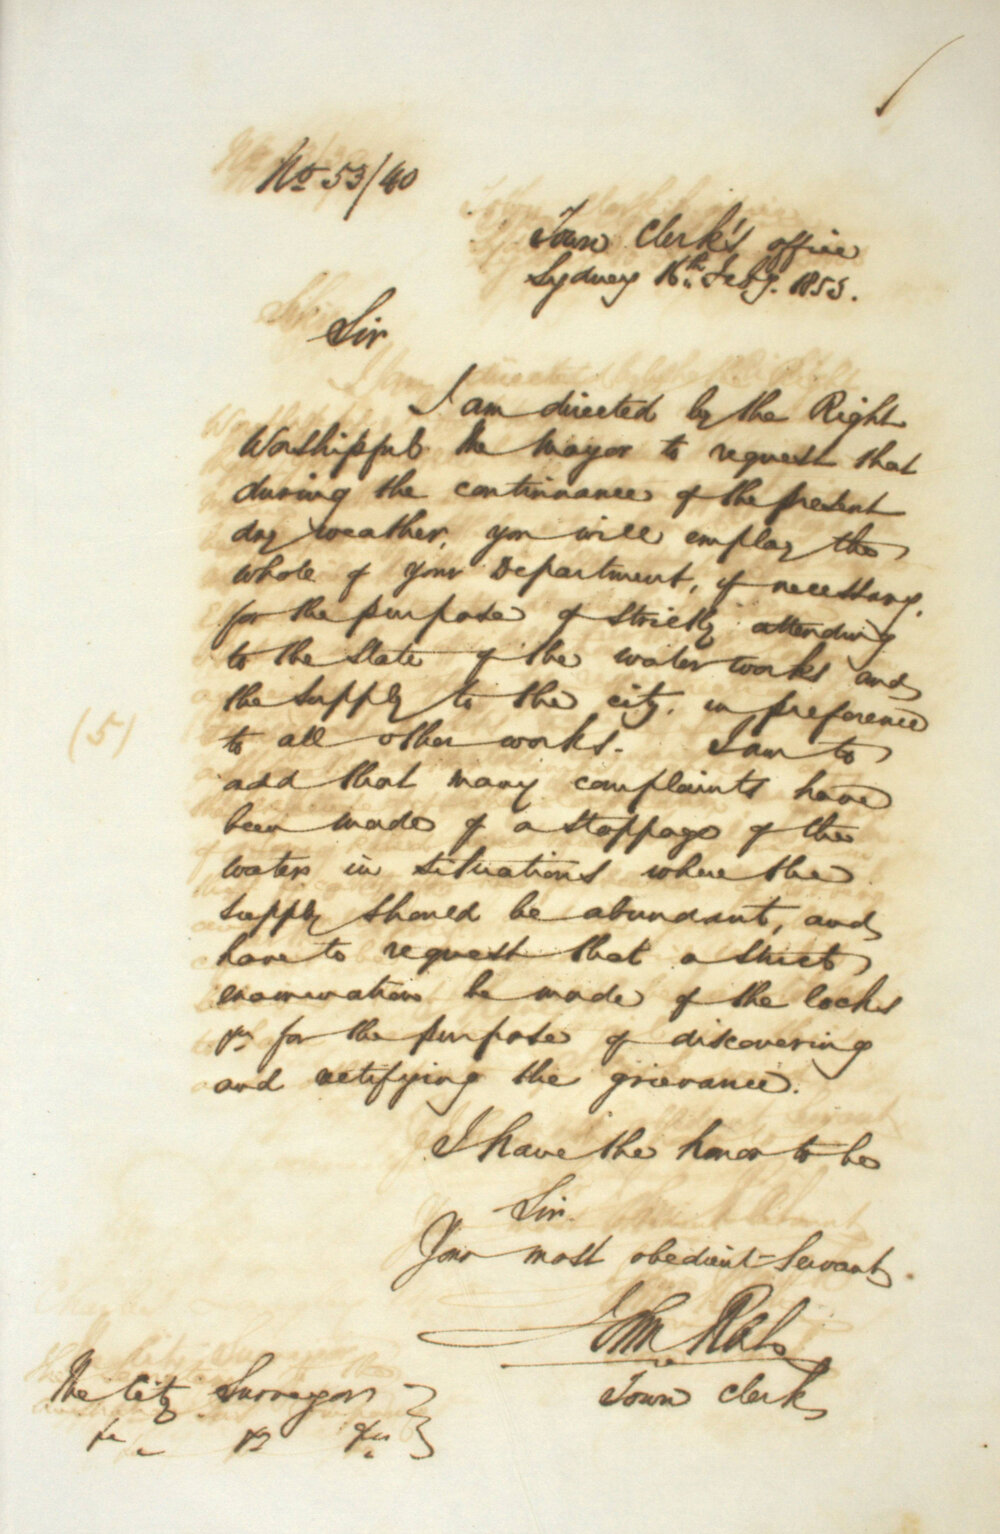 No 53/40
Town Clerk's office
Sydney 16th Feby. 1853.
Sir
I am directed by the Right
Worshipful the Mayor to request that
during the continuance of the present
dry weather, you will employ the
whole of your Department, if necessary,
for the purpose of strictly attending
to the state of the water works and
the supply to the city, in preference
to all other works. I am to
add that many complaints have
been made of a stoppage of the
water in situations where the
supply should be abundant, and
have to request that a strict
examination be made of the locks
&c for the purpose of discovering
and retifying the grievance.
I have the honor to be
Sir.
Your most obedient Servant
John Rae
Town Clerk
The City Surveyor
&c &c &c
(5)